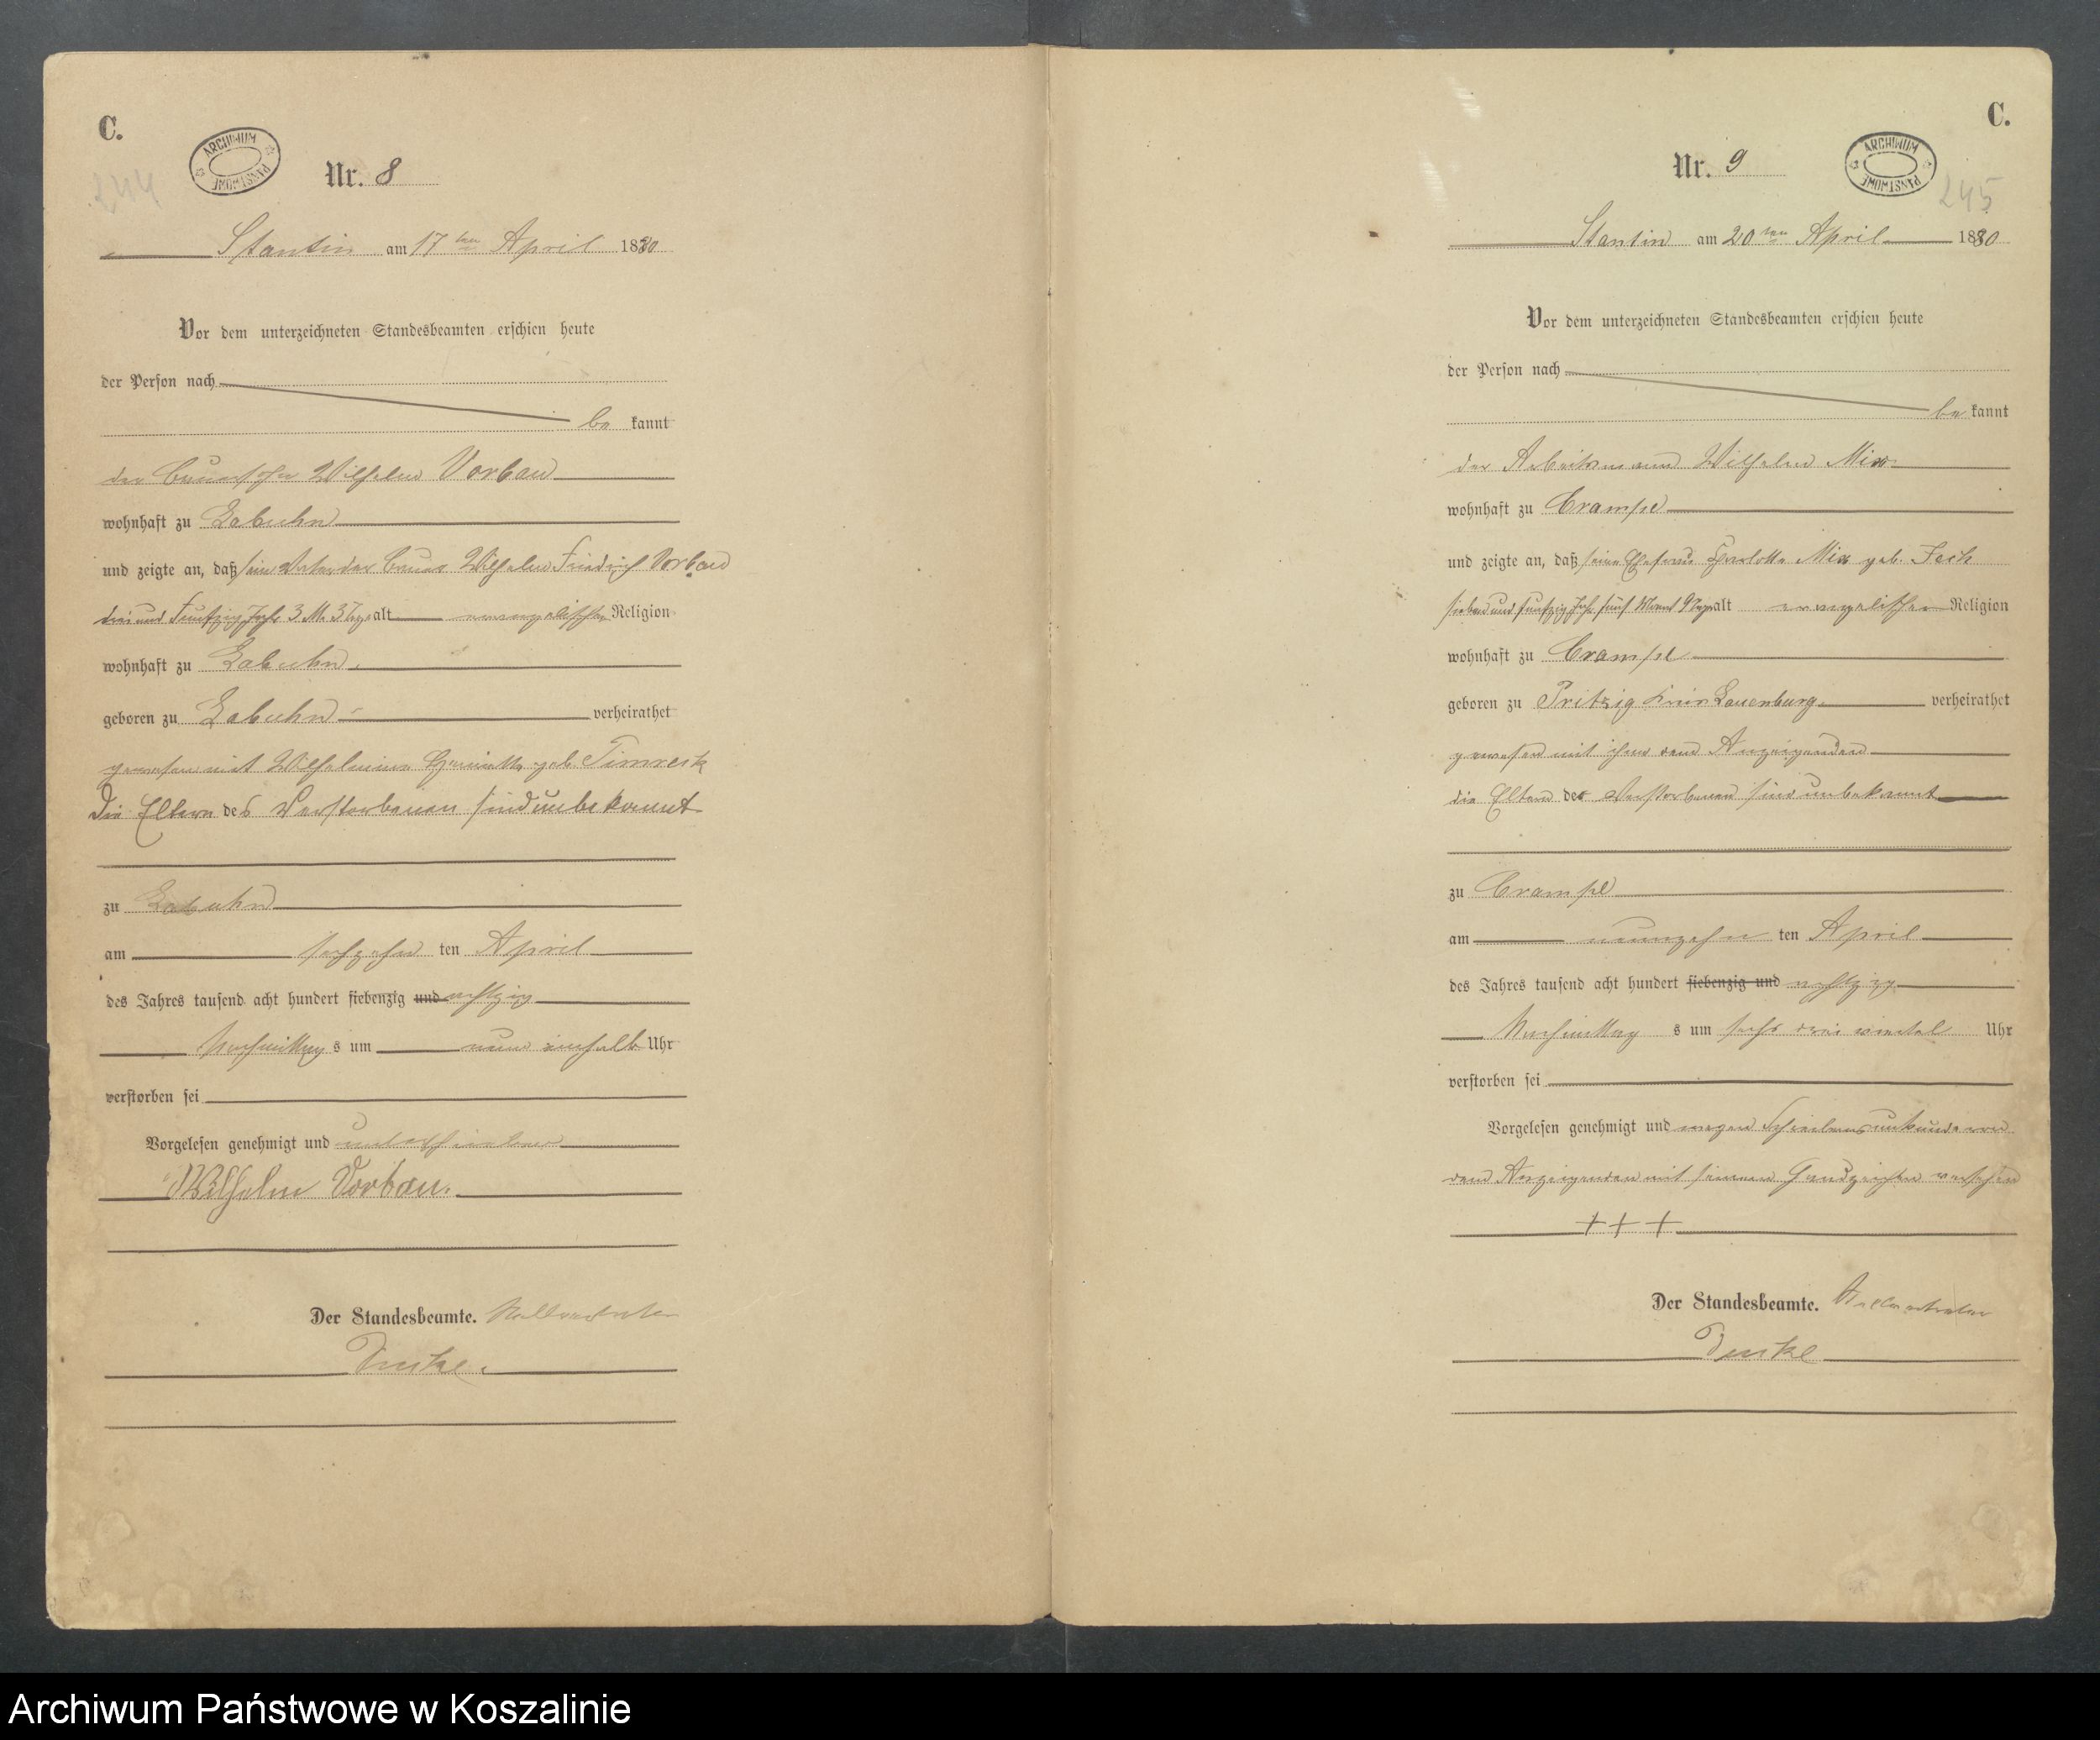 C.
244
ARCHIWUM PAŃSTWOWE
Nr. 8
Stantin am 17ten April 1880
Vor dem unterzeichneten Standesbeamten erschien heute
der Person nach
be kannt
der Bauersohn Wilhelm Vorbau
wohnhaft zu Labuhn
und zeigte an, daß sein Vater der Bauer Wilhelm Friedrich Vorbau
drei und Funfzig Jahr 3 M. 3 Tage alt evangelischer Religion
wohnhaft zu Labuhn
geboren zu Labuhn verheirathet
gewesen mit Wilhelmine Henriette geb. Timreck
Die Eltern des Verstorbenen sind unbekannt
zu Labuhn
am sechzehn ten April
des Jahres tausend acht hundert siebenzig und achtzig
Nachmittag s um neun einhalb Uhr
verstorben sei
Vorgelesen genehmigt und unterschrieben
Wilhelm Vorbau.
Der Standesbeamte. Stellvertreter
C.
245
ARCHIWUM PAŃSTWOWE
Nr. 9
Stantin am 20ten April 1880
Vor dem unterzeichneten Standesbeamten erschien heute
der Person nach
be kannt
der Arbeitsmann Wilhelm Mix
wohnhaft zu Crampe
und zeigte an, daß seine Ehefrau Charlotte Mix geb. Jech
sieben und funfzig Jahr fünf Monat 9 Tage alt evangelischer Religion
wohnhaft zu Crampe
geboren zu Pritzig Kreis Lauenburg verheirathet
gewesen mit ihm dem Anzeigenden
die Eltern der Verstorbenen sind unbekannt
zu Crampe
am neunzehn ten April
des Jahres tausend acht hundert siebenzig und achtzig
Nachmittag s um sechs drei viertel Uhr
verstorben sei
Vorgelesen genehmigt und wegen Schreibensunkunde von
dem Anzeigenden mit seinem Handzeichen versehen
+ + +
Der Standesbeamte. Stellvertreter
Archiwum Państwowe w Koszalinie